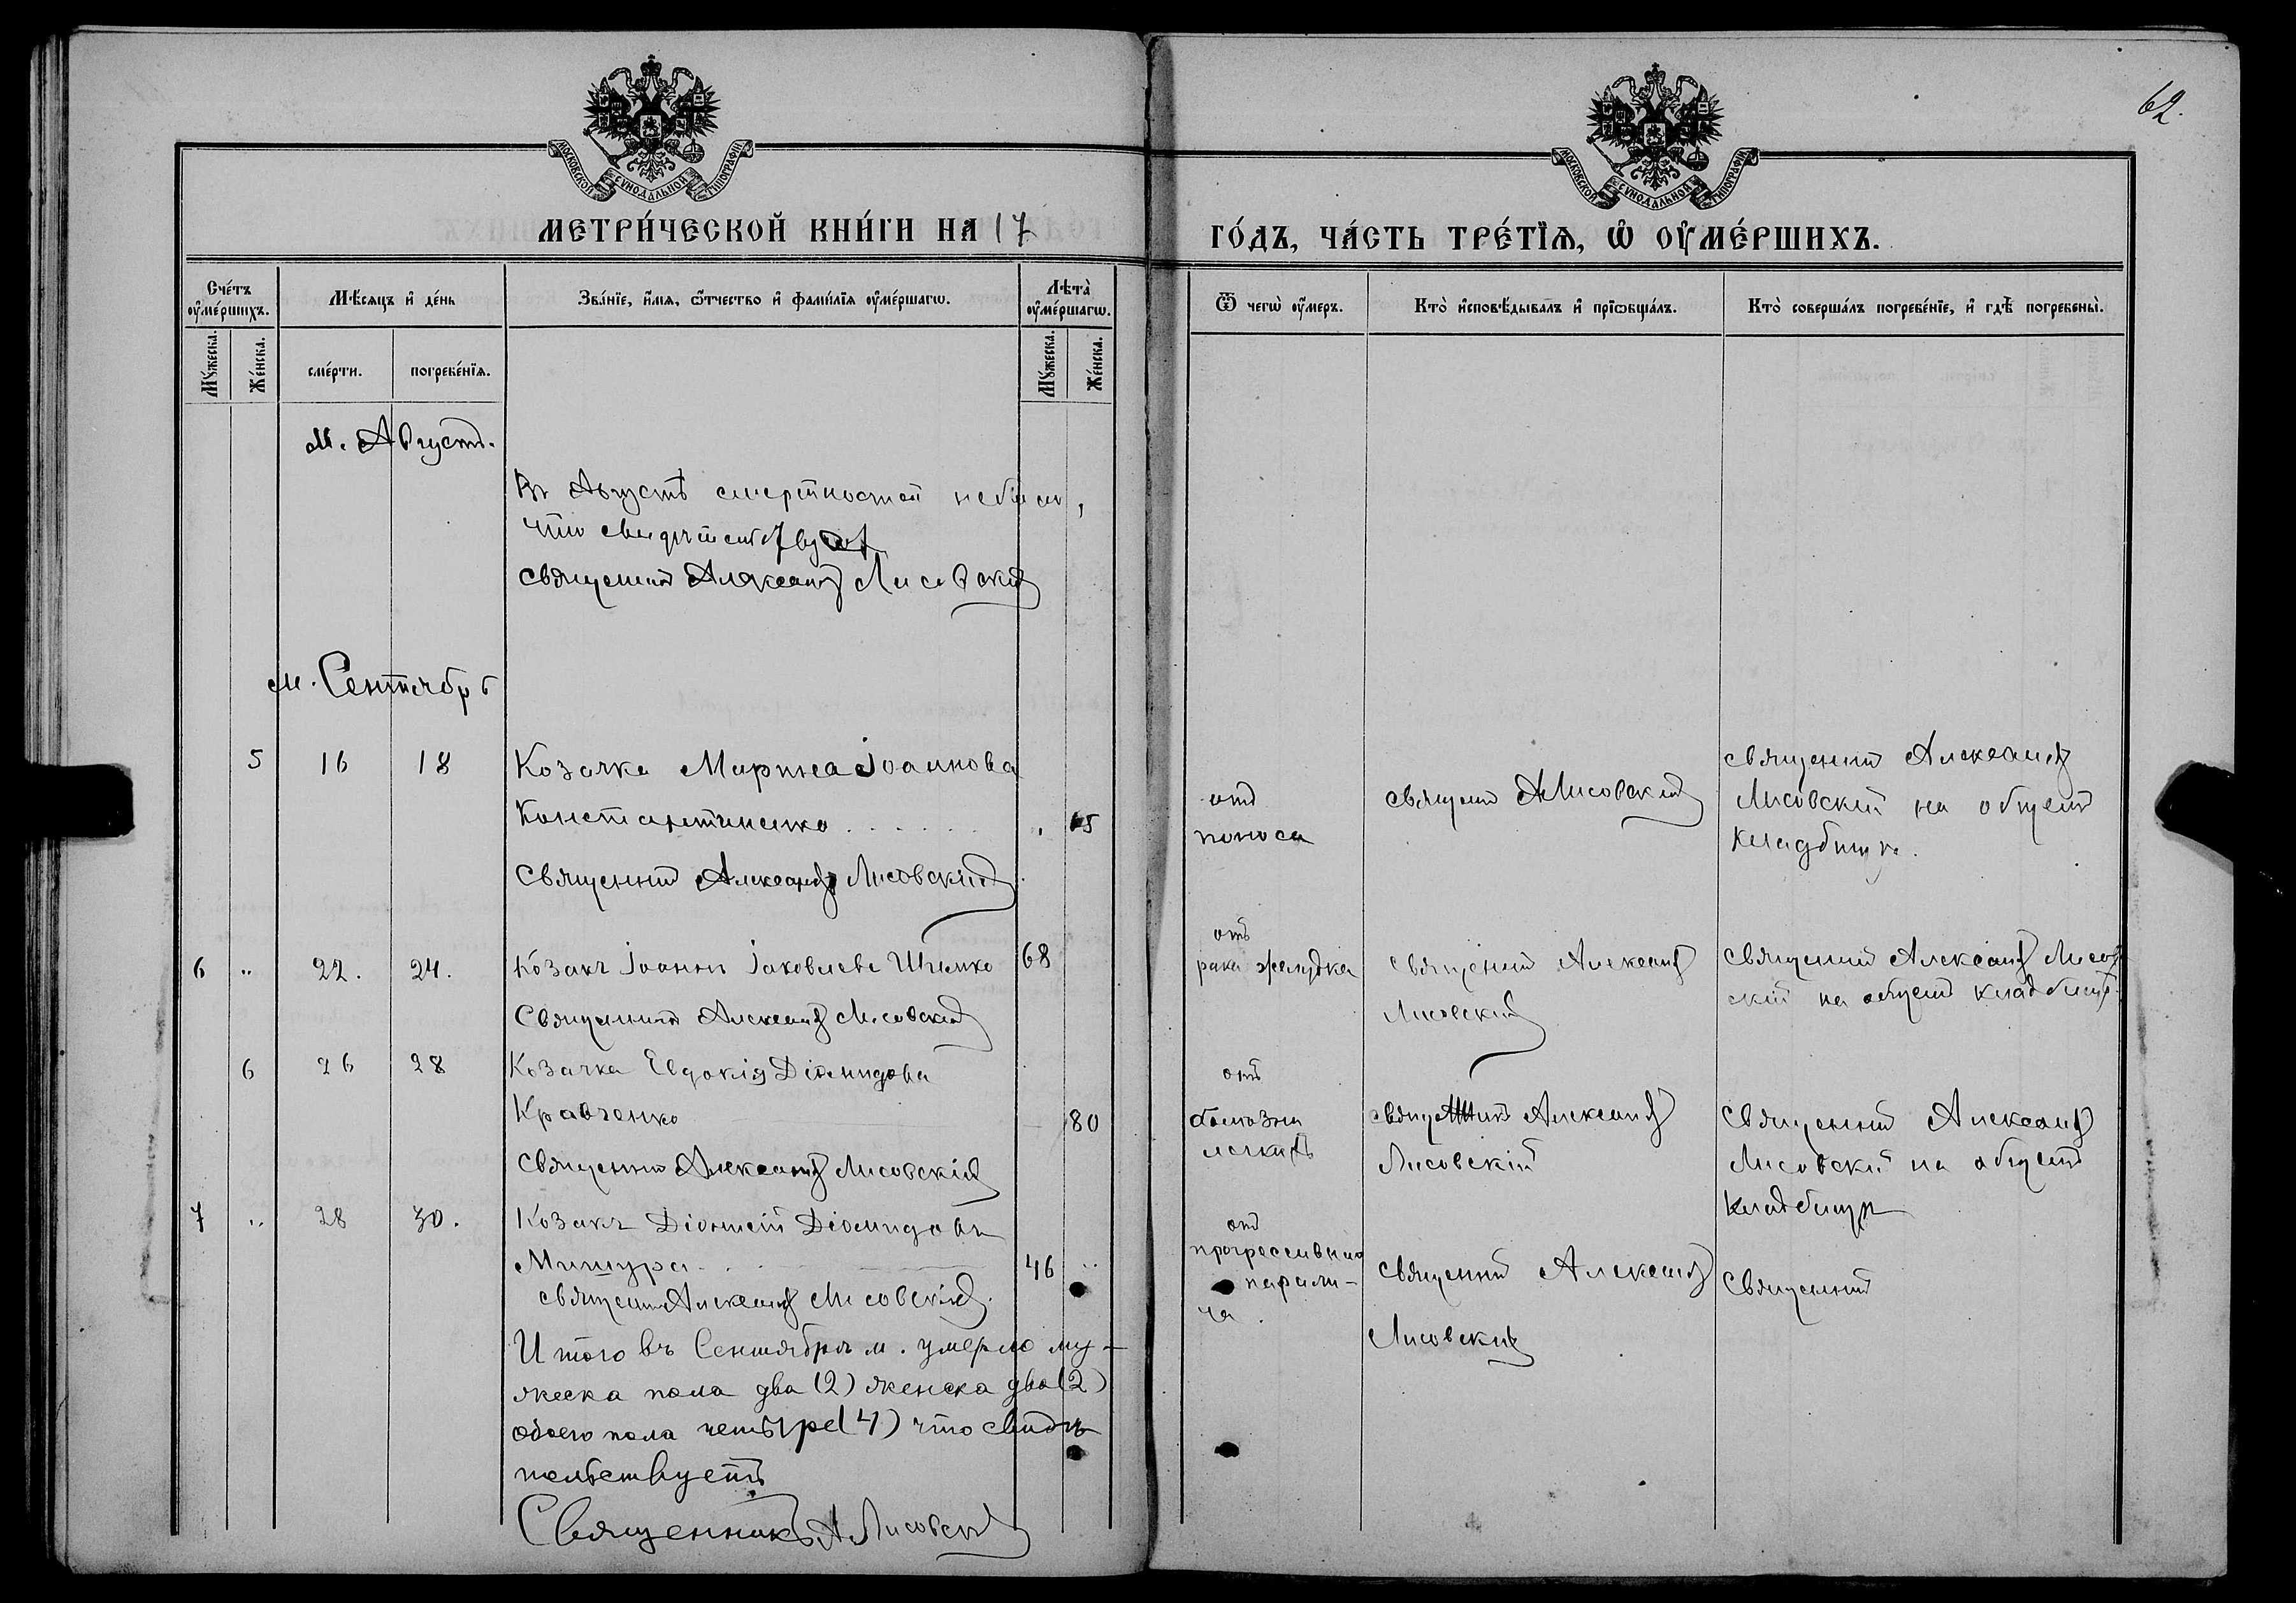 62.
МОСКОВСКОЙ СѴНОДАЛЬНОЙ ТИПОГРАФІИ
МОСКОВСКОЙ СѴНОДАЛЬНОЙ ТИПОГРАФІИ
МЕТРИ́ЧЕСКОЙ КНИ́ГИ НА 17
ГО́ДЪ, ЧА́СТЬ ТРЕ́ТЇѦ, Ѡ҆ ОУ҆МЕ́РШИХЪ.
Сче́тъ оу҆ме́ршихъ.
Мѣ́сѧцъ и҆ де́нь
Зва́нїе, и҆́мѧ, ѻ҆́тчество и҆ фами́лїѧ оу҆ме́ршагѡ.
Лѣ́та оу҆ме́ршагѡ.
Ѿ чегѡ̀ оу҆́меръ.
Кто̀ и҆сповѣ́дывалъ и҆ прїѡбща́лъ.
Кто̀ соверша́лъ погребе́нїе, и҆ гдѣ̀ погребены̀.
Мꙋ́жеска.
Же́нска.
сме́рти.
погребе́нїѧ.
Мꙋ́жеска.
Же́нска.
м. Августъ.
Въ Августѣ смертностей небыло,
что свидѣтельствуетъ
священникъ Александръ Лисовскій
м. Сентябрь
5 16 18 Козачка Марина Іоаннова
Константиненко
Священникъ Александръ Лисовскій
отъ
поноса
священникъ А Лисовскій
священникъ Александръ
Лисовскій на общемъ
кладбищѣ.
6 " 22. 24. Козакъ Іоаннъ Іаковлевъ 68
Священникъ Александръ Лисовскій
отъ
рака желудка
священникъ Александръ
Лисовскій
священникъ Александръ Лисов
скій на общемъ кладбищѣ
6 26 28 Козачка Евдокія Діомидова
Кравченко 80
священникъ Александръ Лисовскій
отъ
болѣзни
легкихъ
священникъ Александръ
Лисовскій
Священникъ Александръ
Лисовскій на общемъ
кладбищѣ
7 " 28 30. Козакъ Діонисій Діомидовъ
Мишура 46 "
священникъ Александръ Лисовскій.
отъ
прогрессивнаго
парали-
ча.
священникъ Александръ
Лисовскій
Священникъ
Итого въ Сентябрѣ м. умерло му-
жеска пола два (2) женска два (2)
обоего пола четыре (4) что свидѣ
тельствуетъ
Священникъ А Лисовскій